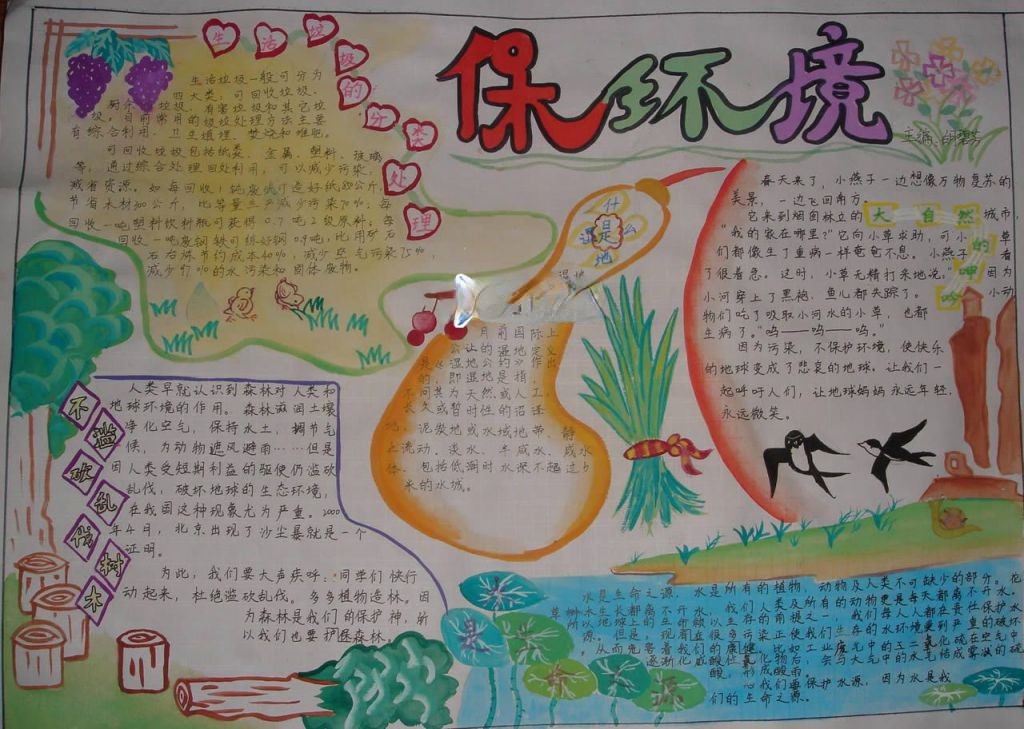 保环境
主编：胡碧芳
生活垃圾的分类处理
生活垃圾一般可分为
四大类：可回收垃圾、
厨余垃圾、有害垃圾和其它垃
圾。目前常用的垃圾处理方法主要
有综合利用、卫生填埋、焚烧和堆肥。
可回收垃圾包括纸类、金属、塑料、玻璃
等，通过综合处理回处利用，可以减少污染，
减省资源。如每回收1吨废纸可造好纸850公斤，
节省木材300公斤，比等量生产减少污染74%；每
回收一吨塑料饮料瓶可获得0.7吨2级原料；每
回收一吨废钢铁可炼好钢0.9吨，比用矿石
石冶炼节约成本40%，减少空气污染75%，
减少97%的水污染和固体废物。
什么是湿地
湿地
目前国际上
公认的湿地定义
是《湿地公约》作出
的，即湿地是指，
不问其为天然或人工、
长久或暂时性的沼泽
地、泥炭地或水域地带、静
止流动、淡水、半咸水、咸水
体，包括低潮时水深不超过6
米的水域。
大自然的呻吟
春天来了，小燕子一边想像万物复苏的
美景，一边飞回南方。
它来到烟囱林立的城市，
“我的家在哪里？”它向小草求助，可小草
们都像生了重病一样奄奄不息。小燕子看
了很着急。这时，小草无精打采地说，“因为
小河穿上了黑袍，鱼儿都失踪了。小动
物们吃了吸取小河水的小草，也都
生病了。”呜——呜——呜。”
因为污染，不保护环境，使快乐
的地球变成了悲哀的地球。让我们一
起呼吁人们，让地球妈妈永远年轻，
永远微笑。
不滥砍乱伐树木
人类早就认识到森林对人类和
地球环境的作用。森林滋固土壤
净化空气，保持水土，调节气
候，为动物遮风避雨……但是
因人类受短期利益的驱使仍滥砍
乱伐，破坏地球的生态环境，
在我国这种现象尤为严重。2000
年4月，北京出现了沙尘暴就是一个
证明。
为此，我们要大声疾呼：同学们快行
动起来，杜绝滥砍乱伐。多多植物造林。因
为森林是我们的保护神，所
以我们也要保护森林。
水是生命之源
水是生命之源，水是所有的植物、动物及人类不可缺少的部分。花
草树木生长都离不开水，我们人类及所有的动物更是每天都离不开水。
所以地球上的生命赖以生存的前提之一，我们每人人都在责任保护水
源。但是，现着在很多污染正使我们生存的水环境受到严重的破坏
，从而危害着我们的康健。比如工业废气中的二氧化硫在空气中
逐渐化成酸性氧化物后，会与大气中的水气结成雾滴的硫
酸，形成酸雨。
心我们要保护水源，因为水是我
们的生命之源。